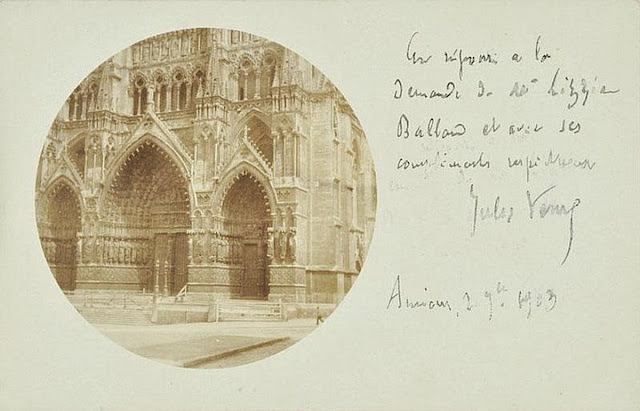 En réponse à la
Demande de Mme Lizzie
Ballard et avec ses
compliments respectueux
Jules Verne
Amiens, 2 9bre 1903